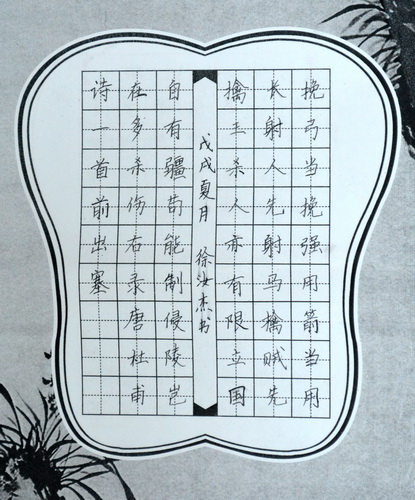 挽弓当挽强用箭当用
长射人先射马擒贼先
擒王杀人亦有限立国
戊戌夏月 徐汝杰书
自有疆苟能制侵陵岂
在多杀伤右录唐杜甫
诗一首前出塞